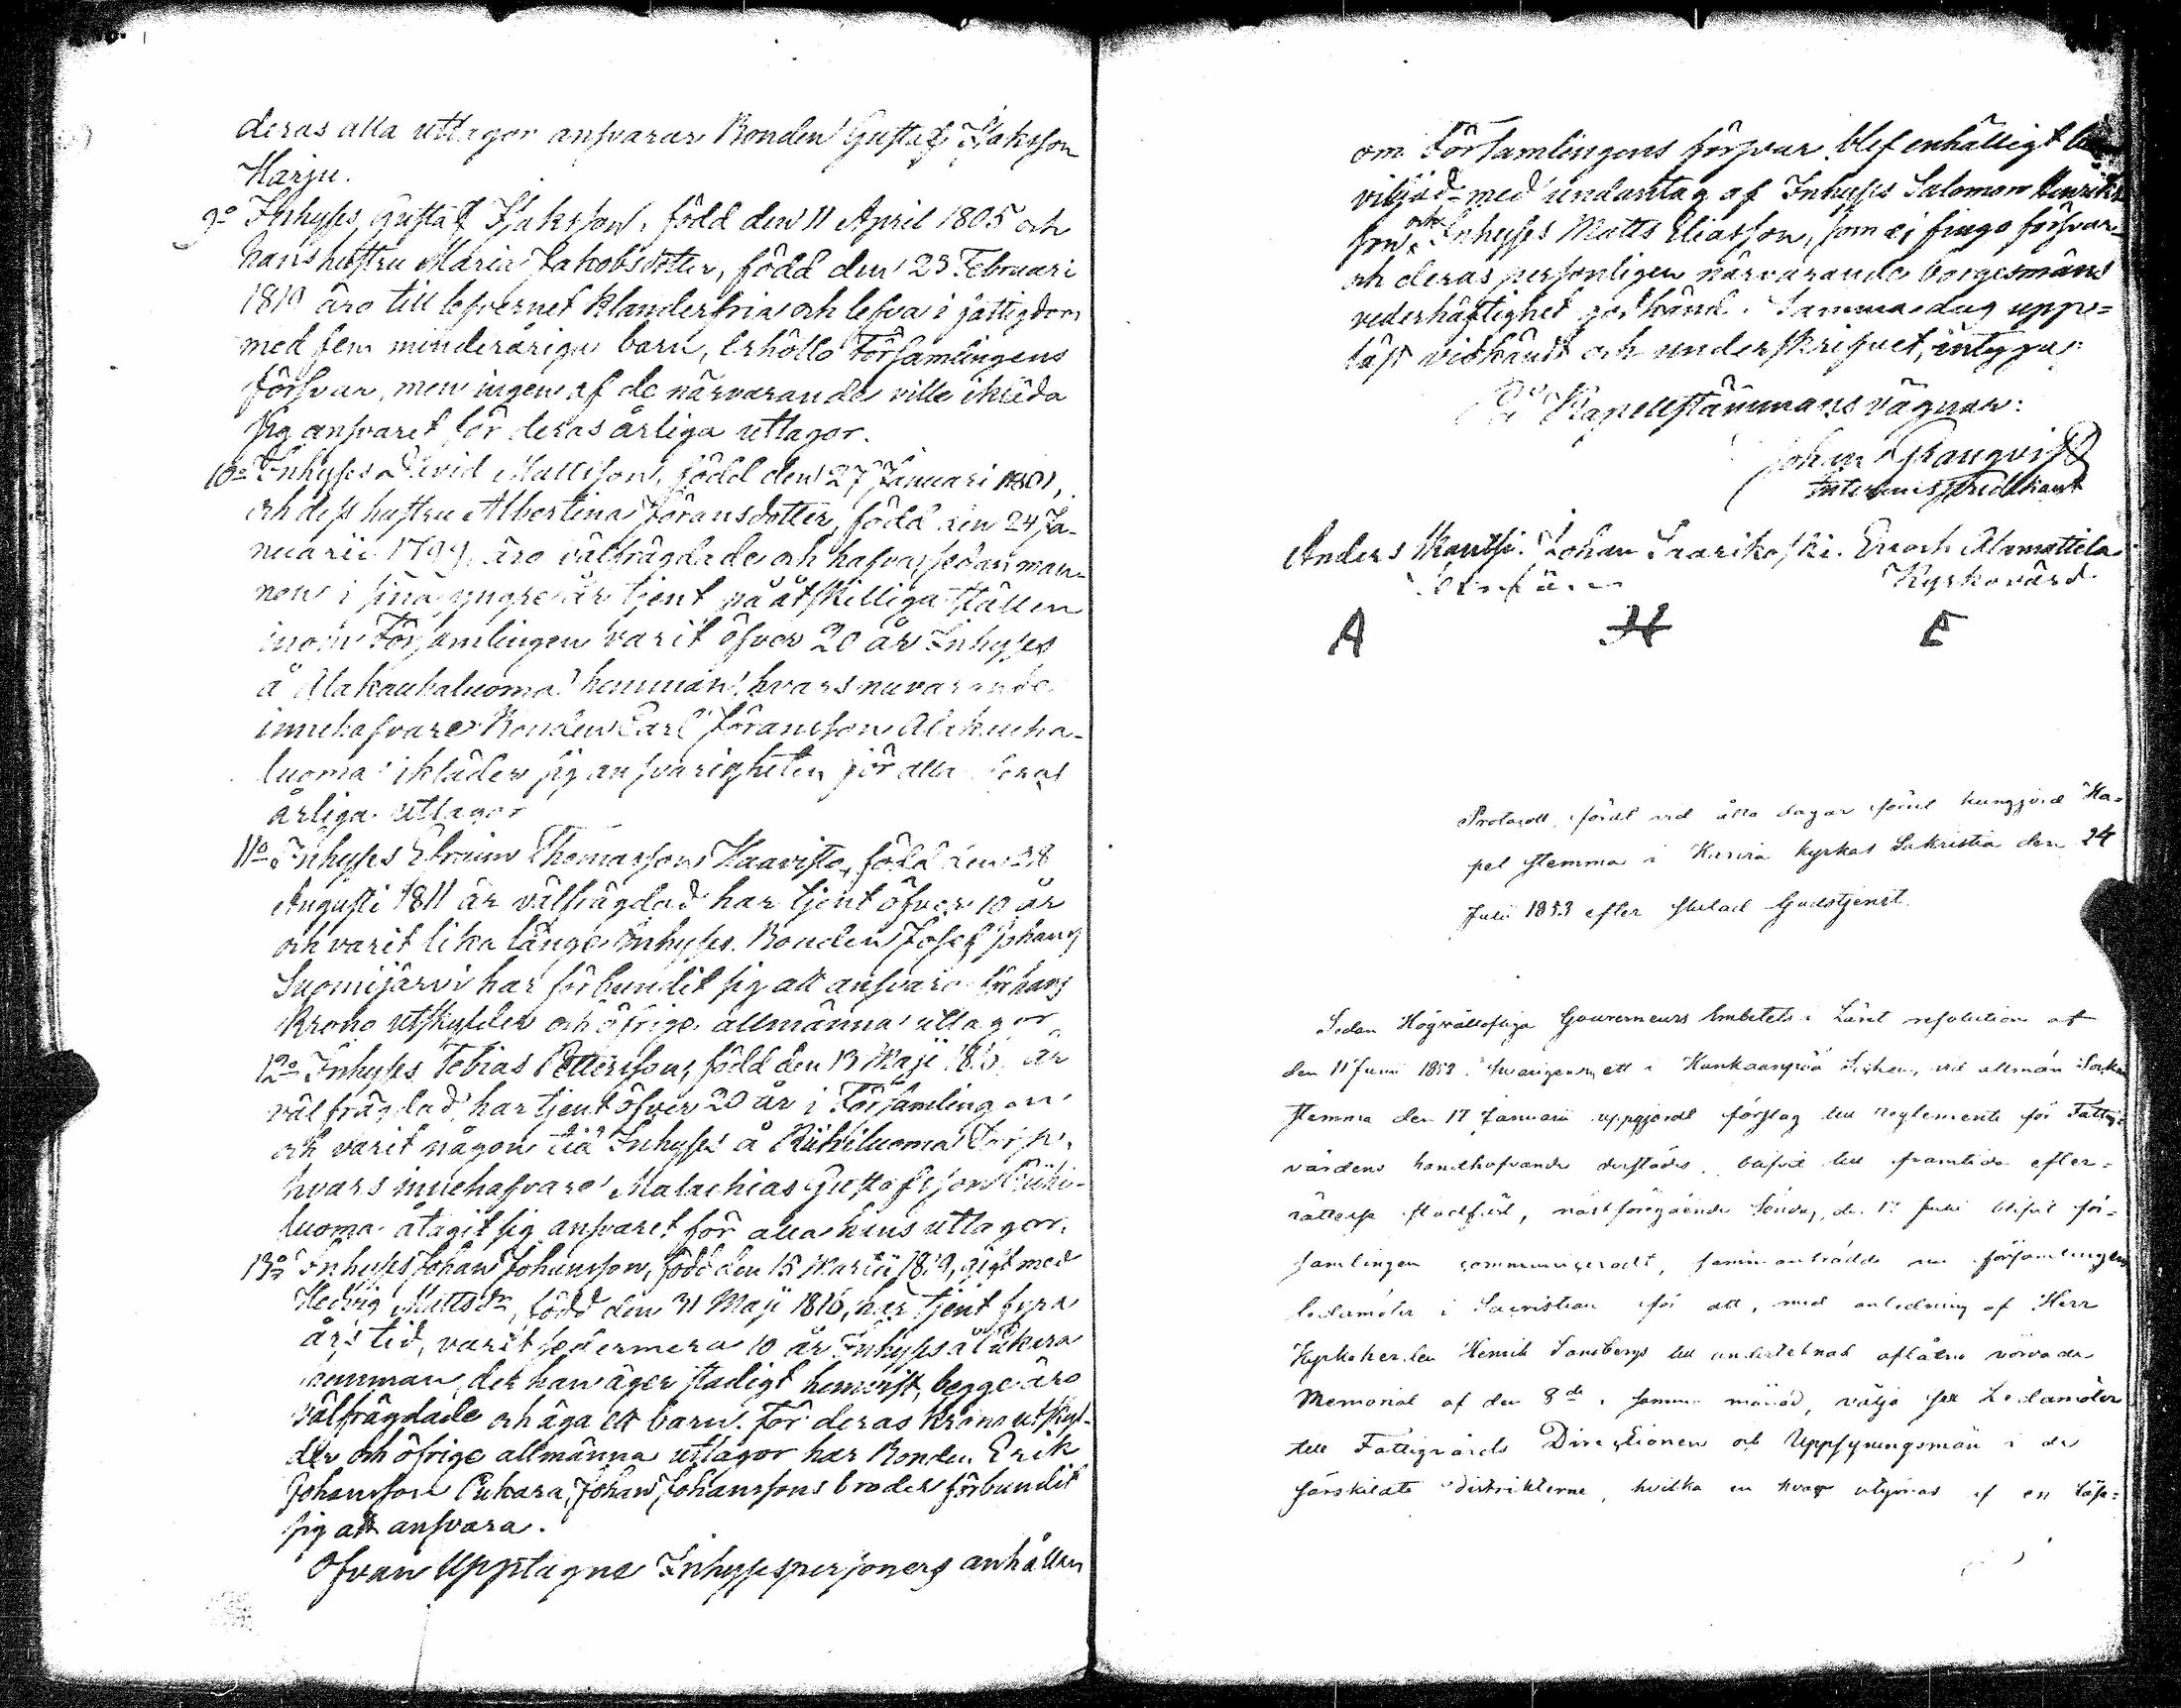 deras alla utlagor ansvarar Bonden Gustaf Isaksson
Harju.
9o Inhyses Gustaf Isaksson, född den 11 April 1805 och
hans hustru Maria Jakobsdotter, född den 23 Februari
1819 äro till lefvernet klanderfria och lefva i fattigdom
med fem minderåriga barn, erhöllo Församlingens
försvar, men ingen af de närvarande ville ikläda
sig ansvaret för deras årliga utlagor.
10o Inhyses David Mattsson, född den 27 Januari 1801,
och dess hustru Albertina Jöransdotter, född den 24 Ja-
nuarii 1799, äro välfrägdade och hafva, sedan man-
nen i sina yngre år tjent på åtskilliga ställen
inom Församlingen varit öfver 20 år Inhyses
å Alakauhaluoma hemman, hvars nuvarande
innehafvare Bonden Carl Jöransson Alakauha-
luoma ikläder sig ansvarigheten för alla deras
årliga utlagor
11o Inhyses Efraim Thomasson Haavisto, född den 28
Augusti 1811 är välfrägdad har tjent öfver 10 år
och varit lika länge Inhyses. Bonden Josef Johans
Suomijärvi har förbundit sig att ansvara för hans
Krono utskylder och öfrige allmänna utlagor
12o Inhyses Tobias Pettersson, född den 13 Maji är
välfrägdad, har tjent öfver 20 år i Församlingen
och varit någon tid Inhyses å Riihiluoma Torp,
hvars innehafvare Malachias Gustafsson Riihi-
luoma åtagit sig ansvaret för alla hans utlagor.
13o Inhyses Johan Johansson, född den 15 Martii 1819, gift med
Hedvig Mattsdr, född den 31 Maji 1816, har tjent fyra
års tid, varit sedermera 10 år Inhyses å Pukara
hemman, der han äger stadigt hemvist, begge äro
välfrägdade och äga ett barn. För deras Krono utskyl-
der och öfrige allmänna utlagor har Bonden Erik
Johansson Pukara, Johan Johanssons broder förbundit
sig att ansvara.
Ofvan Upptagne Inhysespersoners anhållan
om Församlingens försvar blef enhälligt
viljad med undantag af Inhyses Salomon Henriks
son och Inhyses Matts Eliasson, som ej fingo försvar
och deras personligen närvarande borgesmäns
vederhäftighet godkänd. Samma dag uppe-
läst vidkändt och underskrifvet, intyga:
På Kapellstämmans vägnar:
Johan Granqvist
Interims predikant
Anders Skantsi. Johan Saarikoski. Enoch Alamattila
Kyrkovärd
A H E
Protocoll, fördt vid åtta dagar förut kungjord Ka-
pel stemma i Karvia kyrkas Sakristia den 24
Julii 1853 efter slutad Gudstjenst.
Sedan Högvällofliga Gouverneurs Embetets i Länet resolution af
den 11 Junii 1853 ett i Kankaanpää Socken, vid allmän Sockne
stemma den 17 Januarii uppgjordt förslag till reglemente för Fattig-
vårdens handhafvande derstädes, blifvit till framtida efter-
rättelse stadfäst, nästföregående Söndag, den 17 Julii blifvit för-
samlingen communiceradt, sammanträdde nu församlingens
ledamöter i Sacristian för att, med anledning af Herr
Kyrkoherden Henrik Sansbergs till undertecknad aflåtne
Memorial af den 8de samma månad, välja Ledamöter
till Fattigvårds Directionen och Uppsyningsmän i de
särskildte distrikterne, hvilka en hvar utgöras af en Läse-